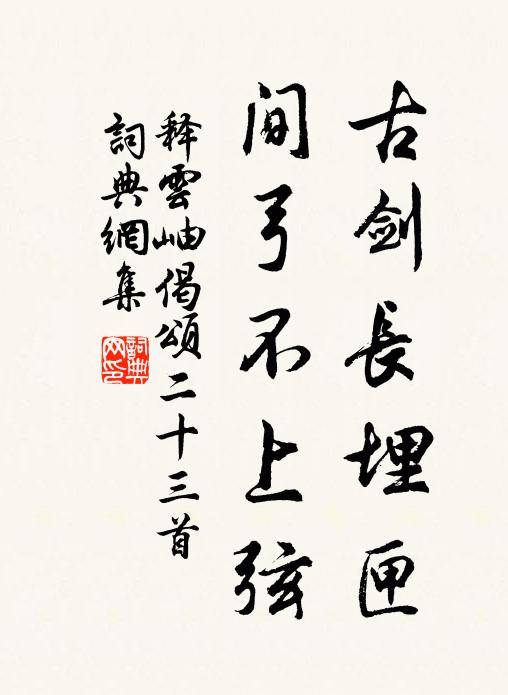 古剑長埋匣
间弓不上弦
释雲岫偈頌二十三首
詞典網集
詞典
网印